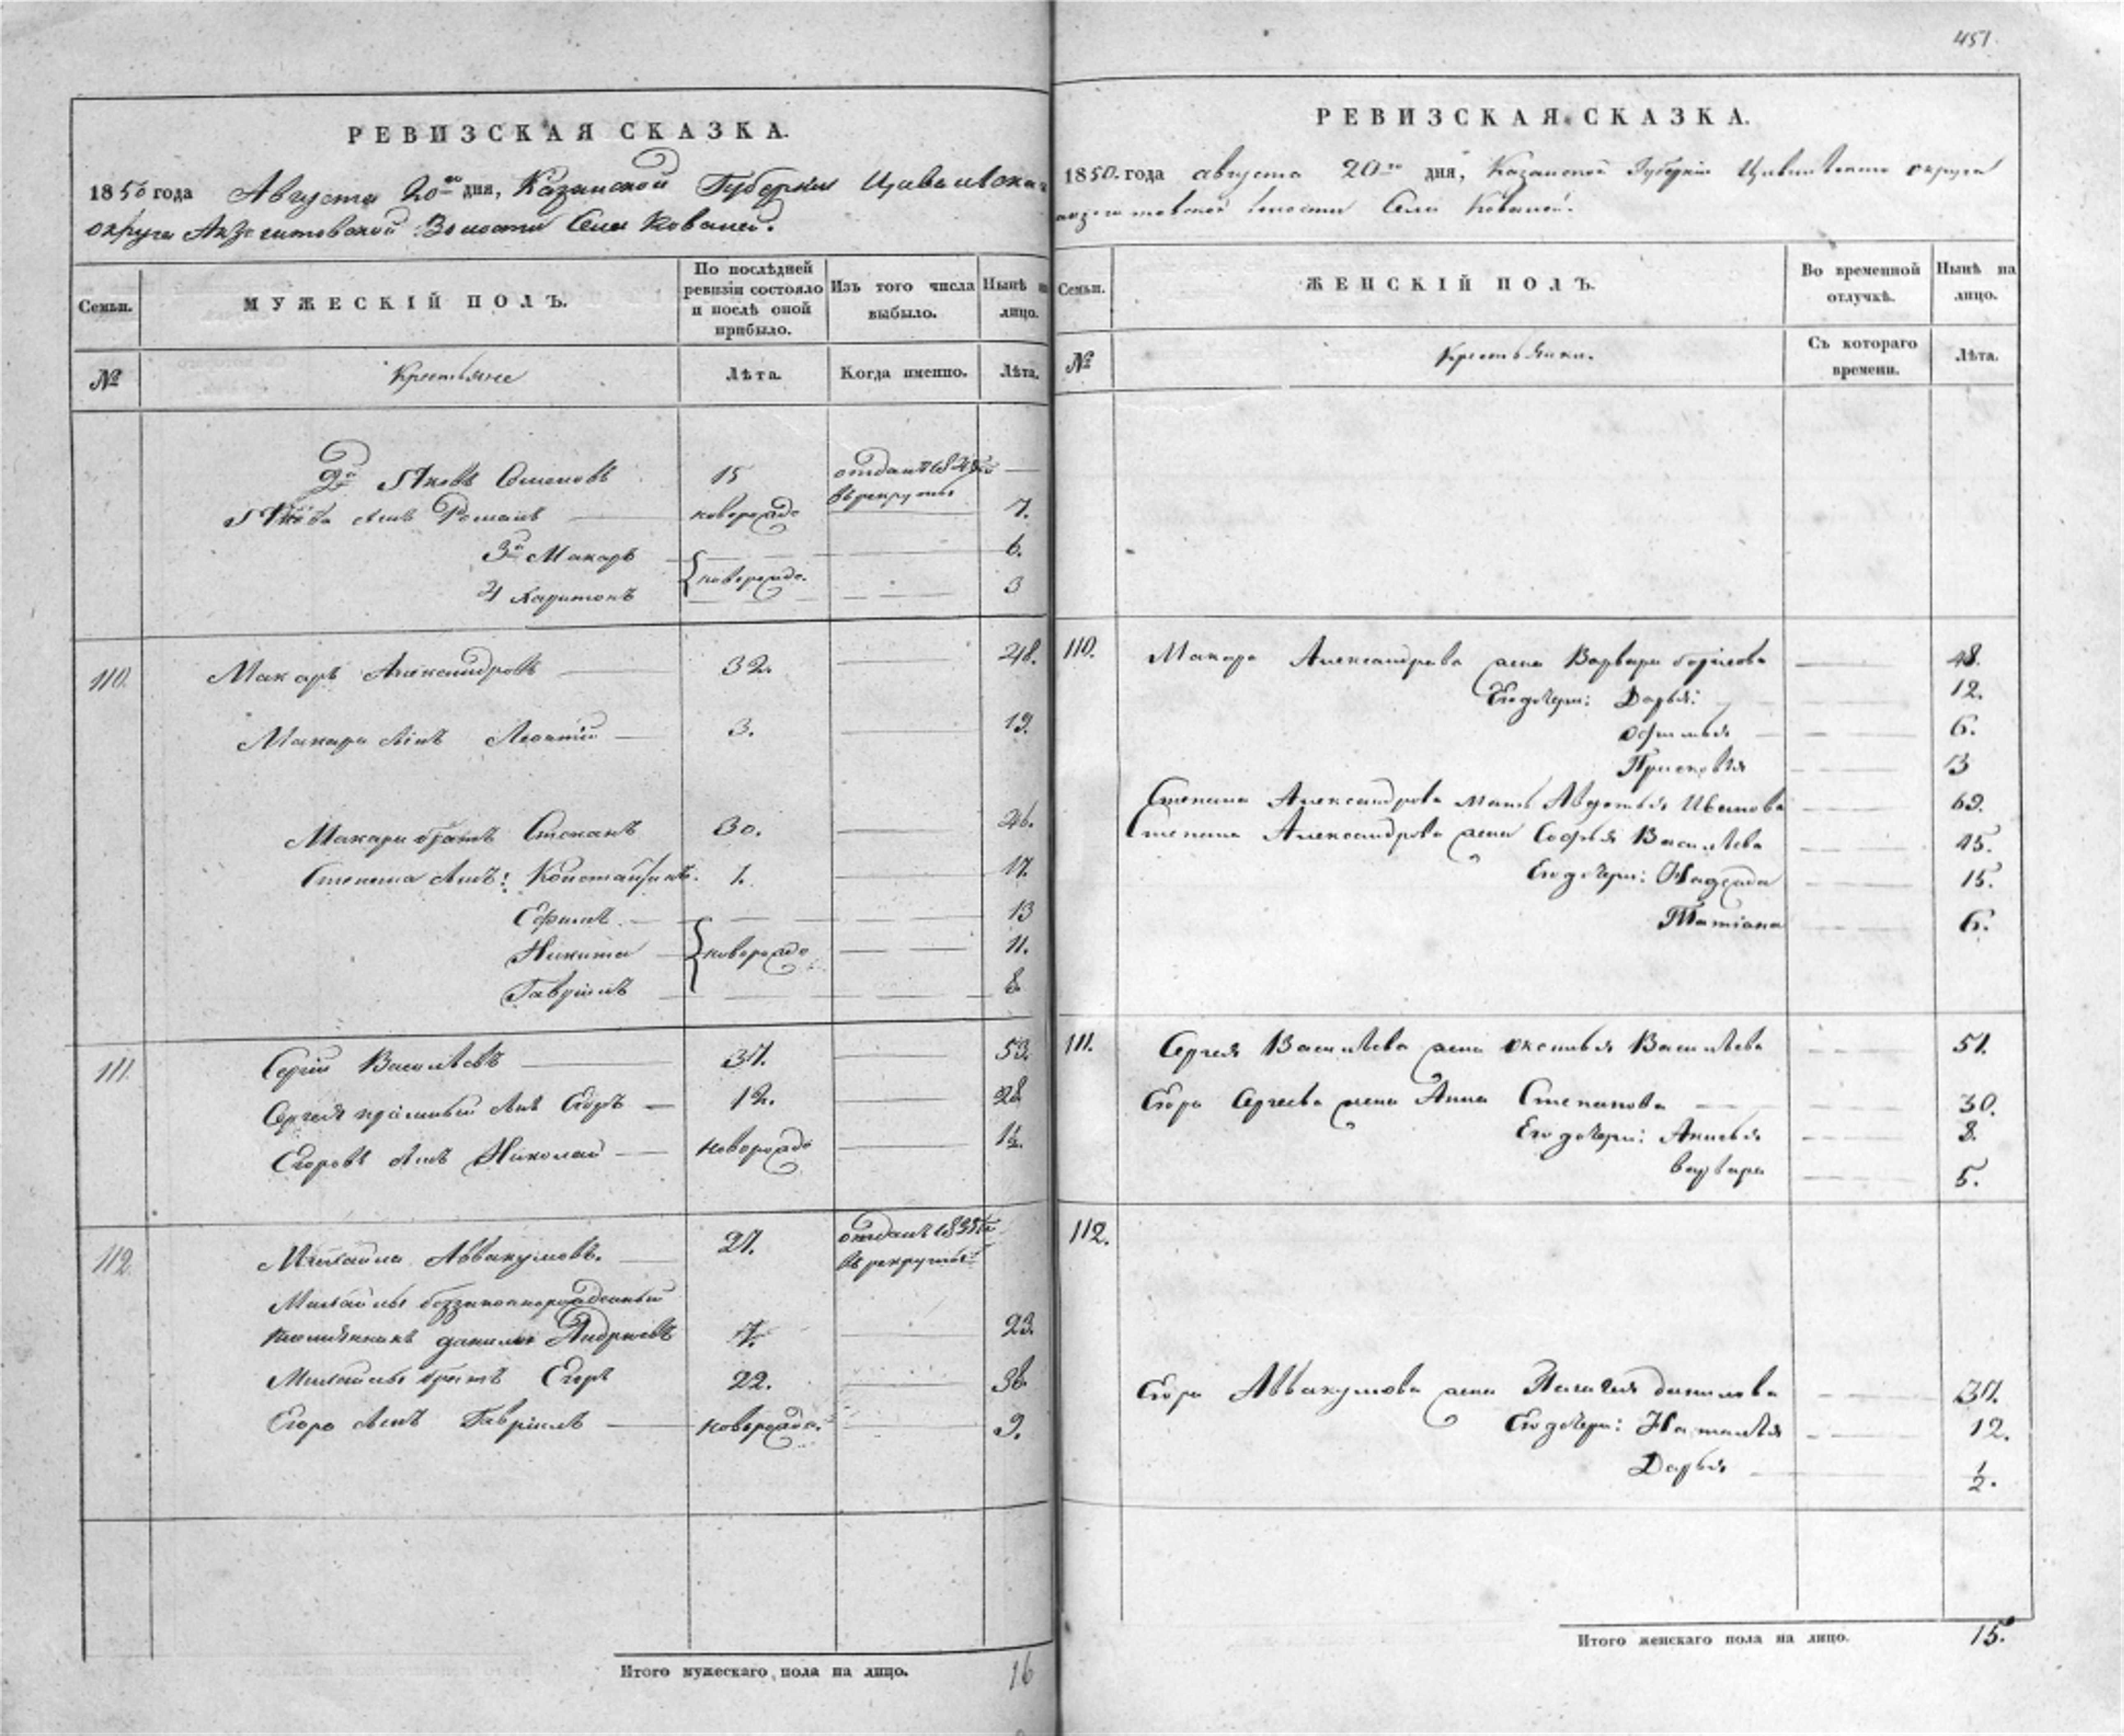 451.
РЕВИЗСКАЯ СКАЗКА.
1850 года Августа 20го дня, Казанской Губернии Цивильскаго
округа Акзегитовской Волости Села Ковалей.
Семьи.
МУЖЕСКІЙ ПОЛЪ.
По послѣдней ревизіи состояло и послѣ оной прибыло.
Изъ того числа выбыло.
Нынѣ на лицо.
№
Крестьяне
Лѣта.
Когда именно.
Лѣта.
2й Яковъ Семеновъ 15 отданъ въ рекруты —
Якова сынъ Романъ — новорожд 7.
3й Макаръ 6.
4 Харитонъ новорожд. 3
110. Макаръ Александровъ — 32. — 48.
Макара сынъ Леонтій — 3. — 19.
Макара братъ Степанъ 30. — 46.
Степана сынъ: Константинъ. 1. — 17.
Ефимъ — 13
Никита новорожд — 11.
Гаврилъ — 8.
111. Сергій Васильевъ — 37. — 53.
Сергея сынъ Егоръ — 12. — 28.
Егоровъ сынъ Николай — новорожд — 1½.
112. Михайла Аввакумовъ. — 21. отданъ 1835го въ рекруты
Михайлы беззаконнорожденный
племянникъ Данила Андреевъ 7. 23.
Михайлы братъ Егоръ 22. — 38.
Егора сынъ Гаврилъ — новорожд. — 9.
Итого мужескаго пола на лицо. 16
РЕВИЗСКАЯ СКАЗКА.
1850. года августа 20го дня, Казанской Губерніи Цивильскаго округа
акзегитовской волости Села Ковалей.
Семьи.
ЖЕНСКІЙ ПОЛЪ.
Во временной отлучкѣ.
Нынѣ на лицо.
№
Крестьянки.
Съ котораго времени.
Лѣта.
110. Макара Александрова жена Варвара Борисова — 48.
Его дочери: Дарья: — 12.
Офимья — 6.
Прасковья — 3
Степана Александрова мать Авдотья Иванова — 69.
Степана Александрова жена Софья Васильева — 45.
Его дочери: Надежда — 15.
Татіана — 6.
111. Сергея Васильева жена Оксинья Васильева — 51.
Егора Сергеева жена Анна Степанова — 30.
Его дочери: Анисья — 8.
Варвара — 5.
112.
Егора Аввакумова жена Пелагея Данилова — 37.
Его дочери: Наталья — 12.
Дарья — ½.
Итого женскаго пола на лицо. 15.